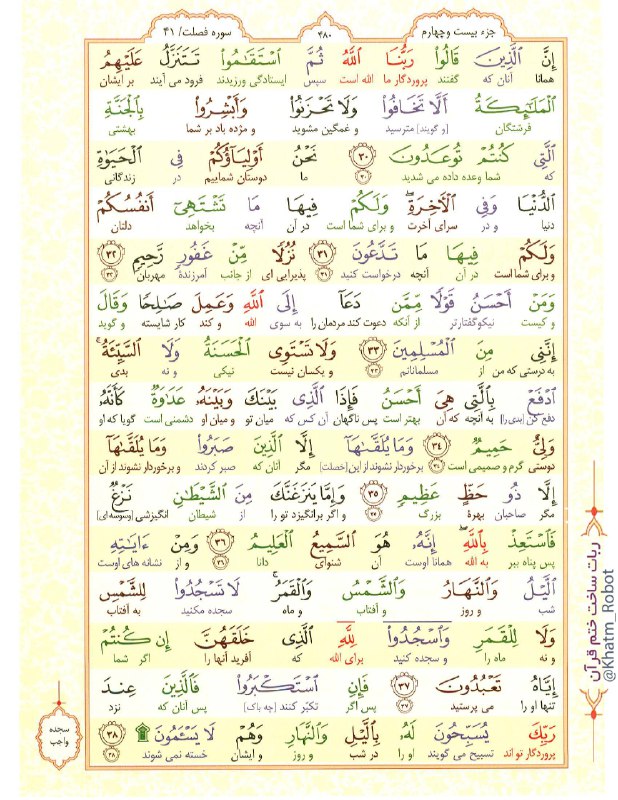 جزء بیست وچهارم
۴۸۰
سوره فصلت/ ۴۱
إِنَّ ٱلَّذِينَ قَالُوا۟ رَبُّنَا ٱللَّهُ ثُمَّ ٱسْتَقَـٰمُوا۟ تَتَنَزَّلُ عَلَيْهِمُ
همانا آنان که گفتند پروردگار ما الله است سپس ایستادگی ورزیدند فرود می آیند بر ایشان
ٱلْمَلَـٰٓئِكَةُ أَلَّا تَخَافُوا۟ وَلَا تَحْزَنُوا۟ وَأَبْشِرُوا۟ بِٱلْجَنَّةِ
فرشتگان [و گویند] مترسید و غمگین مشوید و مژده باد بر شما بهشتی
ٱلَّتِى كُنتُمْ تُوعَدُونَ ۳۰ نَحْنُ أَوْلِيَآؤُكُمْ فِى ٱلْحَيَوٰةِ
که شما وعده داده می شدید ۳۰ ما دوستان شماییم در زندگانی
ٱلدُّنْيَا وَفِى ٱلْـَٔاخِرَةِ ۖ وَلَكُمْ فِيهَا مَا تَشْتَهِىٓ أَنفُسُكُمْ
دنیا و در سرای آخرت و برای شما است در آن آنچه بخواهد دلتان
وَلَكُمْ فِيهَا مَا تَدَّعُونَ ۳۱ نُزُلًا مِّنْ غَفُورٍ رَّحِيمٍ ۳۲
و برای شما است در آن آنچه درخواست کنید ۳۱ پذیرایی ای از جانب آمرزندهٔ مهربان ۳۲
وَمَنْ أَحْسَنُ قَوْلًا مِّمَّن دَعَآ إِلَى ٱللَّهِ وَعَمِلَ صَـٰلِحًا وَقَالَ
و کیست نیکوگفتارتر از آنکه دعوت کند مردمان را به سوی الله و کند کار شایسته و گوید
إِنَّنِى مِنَ ٱلْمُسْلِمِينَ ۳۳ وَلَا تَسْتَوِى ٱلْحَسَنَةُ وَلَا ٱلسَّيِّئَةُ ۚ
به درستی که من از مسلمانانم ۳۳ و یکسان نیست نیکی و نه بدی
ٱدْفَعْ بِٱلَّتِى هِىَ أَحْسَنُ فَإِذَا ٱلَّذِى بَيْنَكَ وَبَيْنَهُۥ عَدَٰوَةٌ كَأَنَّهُۥ
دفع کن [بدی را] به آنچه که آن بهتر است پس ناگهان آن کس که میان تو و میان او دشمنی است گویا که او
وَلِىٌّ حَمِيمٌ ۳۴ وَمَا يُلَقَّىٰهَآ إِلَّا ٱلَّذِينَ صَبَرُوا۟ وَمَا يُلَقَّىٰهَآ
دوستی گرم و صمیمی است ۳۴ و برخوردار نشوند از این [خصلت] مگر آنان که صبر کردند و برخوردار نشوند از آن
إِلَّا ذُو حَظٍّ عَظِيمٍ ۳۵ وَإِمَّا يَنزَغَنَّكَ مِنَ ٱلشَّيْطَـٰنِ نَزْغٌ
مگر صاحبان بهرهٔ بزرگ ۳۵ و اگر برانگیزد تو را از شیطان انگیزشی [وسوسه ای]
فَٱسْتَعِذْ بِٱللَّهِ ۖ إِنَّهُۥ هُوَ ٱلسَّمِيعُ ٱلْعَلِيمُ ۳۶ وَمِنْ ءَايَـٰتِهِ
پس پناه ببر به الله همانا اوست آن شنوای دانا ۳۶ و از نشانه های اوست
ٱلَّيْلُ وَٱلنَّهَارُ وَٱلشَّمْسُ وَٱلْقَمَرُ ۚ لَا تَسْجُدُوا۟ لِلشَّمْسِ
شب و روز و آفتاب و ماه سجده مکنید به آفتاب
وَلَا لِلْقَمَرِ وَٱسْجُدُوا۟ لِلَّهِ ٱلَّذِى خَلَقَهُنَّ إِن كُنتُمْ
و نه ماه را و سجده کنید برای الله که آفرید آنها را اگر شما
إِيَّاهُ تَعْبُدُونَ ۳۷ فَإِنِ ٱسْتَكْبَرُوا۟ فَٱلَّذِينَ عِندَ
تنها او را می پرستید ۳۷ پس اگر تکبّر کنند [چه باک] پس آنان که نزد
رَبِّكَ يُسَبِّحُونَ لَهُۥ بِٱلَّيْلِ وَٱلنَّهَارِ وَهُمْ لَا يَسْـَٔمُونَ ۩ ۳۸
پروردگار تو اند تسبیح می گویند او را در شب و روز و ایشان خسته نمی شوند ۳۸
سجده
واجب
ربات ساخت ختم قرآن
@Khatm_Robot